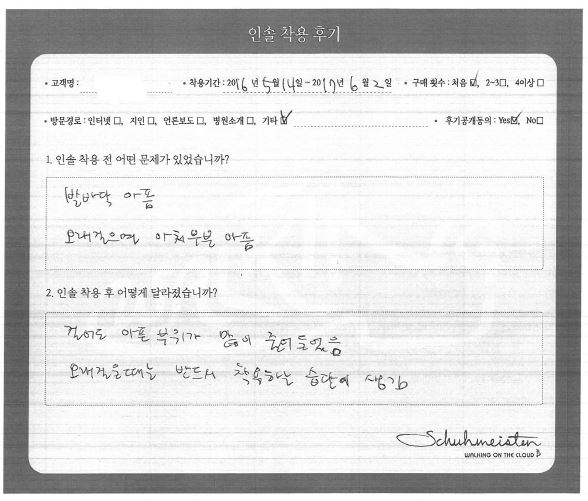 인솔 착용 후기
• 고객명 :
• 착용기간 : 2016년 5월 14일 ~ 2017년 6월 2일
• 구매 횟수 : 처음 ☑, 2~3□, 4이상 □
• 방문경로 : 인터넷 □, 지인 □, 언론보도 □, 병원소개 □, 기타 ☑
• 후기공개동의 : Yes☑, No□
1. 인솔 착용 전 어떤 문제가 있었습니까?
발바닥 아픔
오래걸으면 아치부분 아픔
2. 인솔 착용 후 어떻게 달라졌습니까?
걸어도 아픈 부위가 많이 줄어들었음
오래걸을때는 반드시 착용하는 습관이 생김
Schuhmeister
WALKING ON THE CLOUD